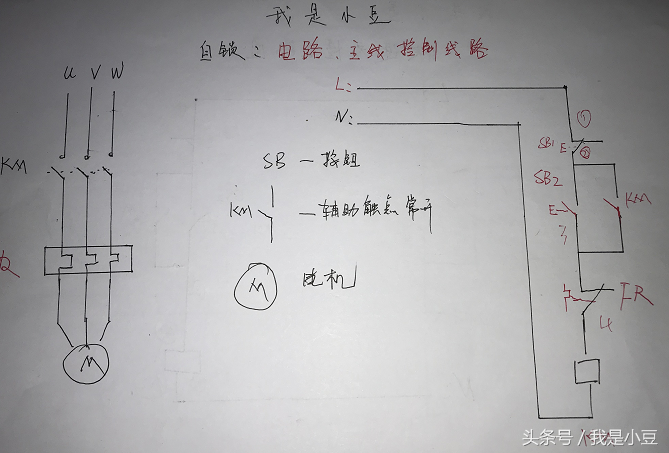 我是小豆
自锁：电路、主线控制线路
U V W
L:
N:
KM
SB一按钮
KM 一辅助触点常开
M 电机
M
①
SB1 E ②
SB2
KM
E
3
FR
4
头条号 / 我是小豆